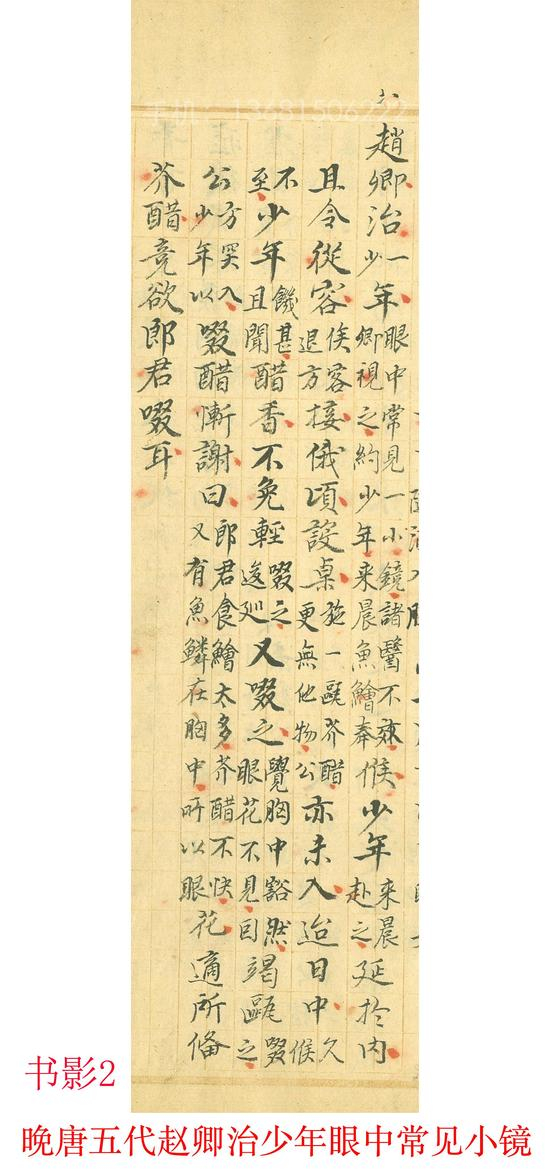 手机：13681506222
趙卿治一少年眼中常見一小鏡諸醫不效卿視之約少年来晨魚鱠奉候少年来晨赴之延於内
且令從容俟客退方接俄頃設桌施一甌芥醋更無他物公亦未入迨日中久候
不至少年饑甚且聞醋香不免輕啜之逡巡又啜之覺胸中豁然眼花不見因竭甌啜之
公方突入少年以啜醋慚謝曰郎君食鱠太多芥醋不快又有魚鱗在胸中所以眼花適所備
芥醋竟欲郎君啜耳
书影2
晚唐五代赵卿治少年眼中常见小镜